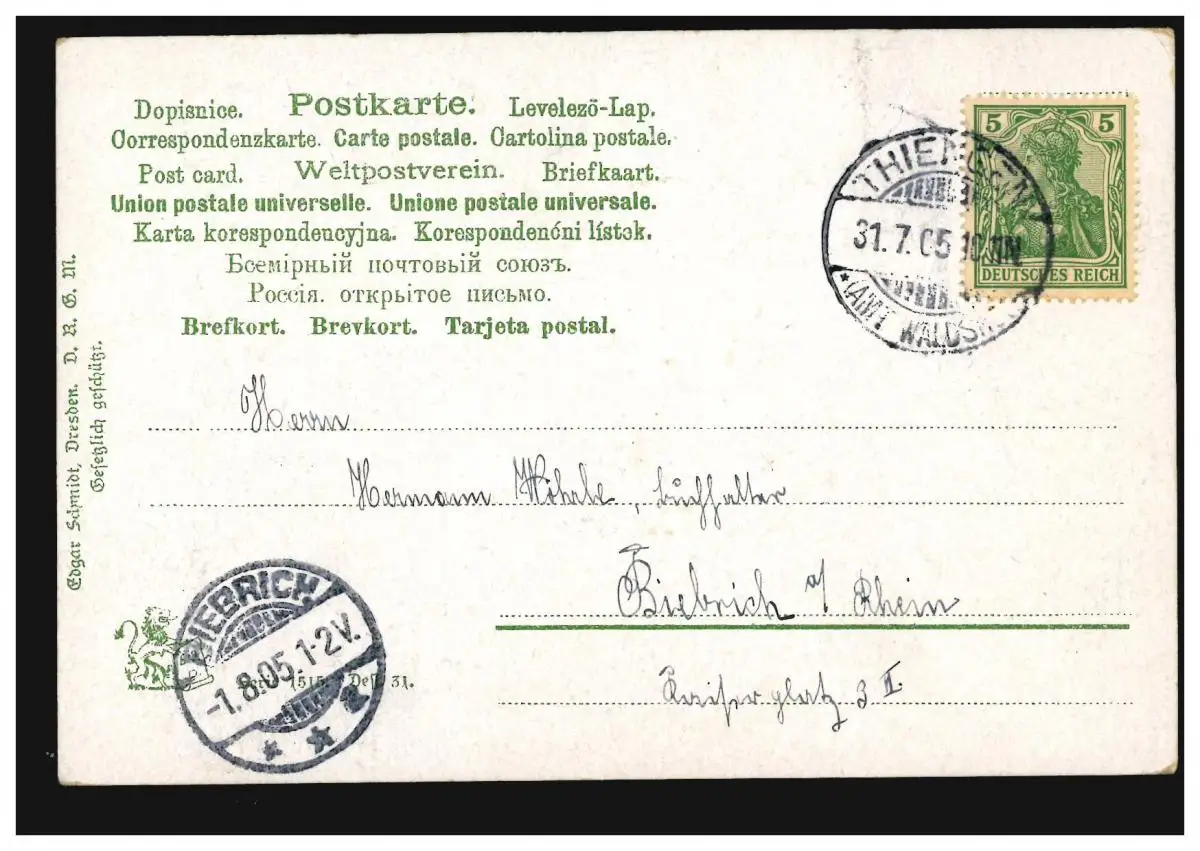 Dopisnice. Postkarte. Levelező-Lap.
Correspondenzkarte. Carte postale. Cartolina postale.
Post card. Weltpostverein. Briefkaart.
Union postale universelle. Unione postale universale.
Karta korespondencyjna. Korespondenćni lístek.
Всемiрный почтовый союзъ.
Россiя. открытое письмо.
Brefkort. Brevkort. Tarjeta postal.
5 5
DEUTSCHES REICH
THIENGEN
31.7.05 10-11N.
* (AMT WALDSHUT)
Edgar Schmidt, Dresden. D. R. G. M.
Gesetzlich geschützt.
Herrn
Hermann Wöhrle, Buchhalter
Biebrich a/ Rhein
Kaiserplatz 3 II.
BIEBRICH
-1.8.05.1-2V.
* * a
1515 31.